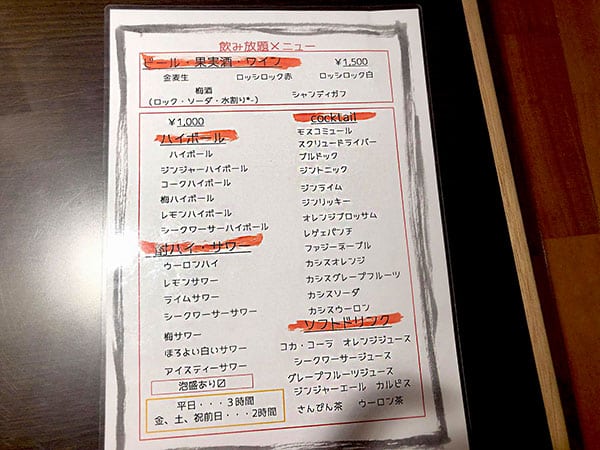 飲み放題メニュー
ビール・果実酒・ワイン ¥1,500
金麦生 ロッシロック赤 ロッシロック白
梅酒
(ロック・ソーダ・水割り*~) シャンディガフ
¥1,000
ハイボール
ハイボール
ジンジャーハイボール
コークハイボール
梅ハイボール
レモンハイボール
シークワーサーハイボール
酎ハイ・サワー
ウーロンハイ
レモンサワー
ライムサワー
シークワーサーサワー
梅サワー
ほろよい白いサワー
アイスティーサワー
泡盛あり〼
平日・・・3時間
金、土、祝前日・・・2時間
cocktail
モスコミュール
スクリュードライバー
ブルドック
ジントニック
ジンライム
ジンリッキー
オレンジブロッサム
レゲエパンチ
ファジーネーブル
カシスオレンジ
カシスグレープフルーツ
カシスソーダ
カシスウーロン
ソフトドリンク
コカ・コーラ オレンジジュース
シークワーサージュース
グレープフルーツジュース
ジンジャーエール カルピス
さんぴん茶 ウーロン茶